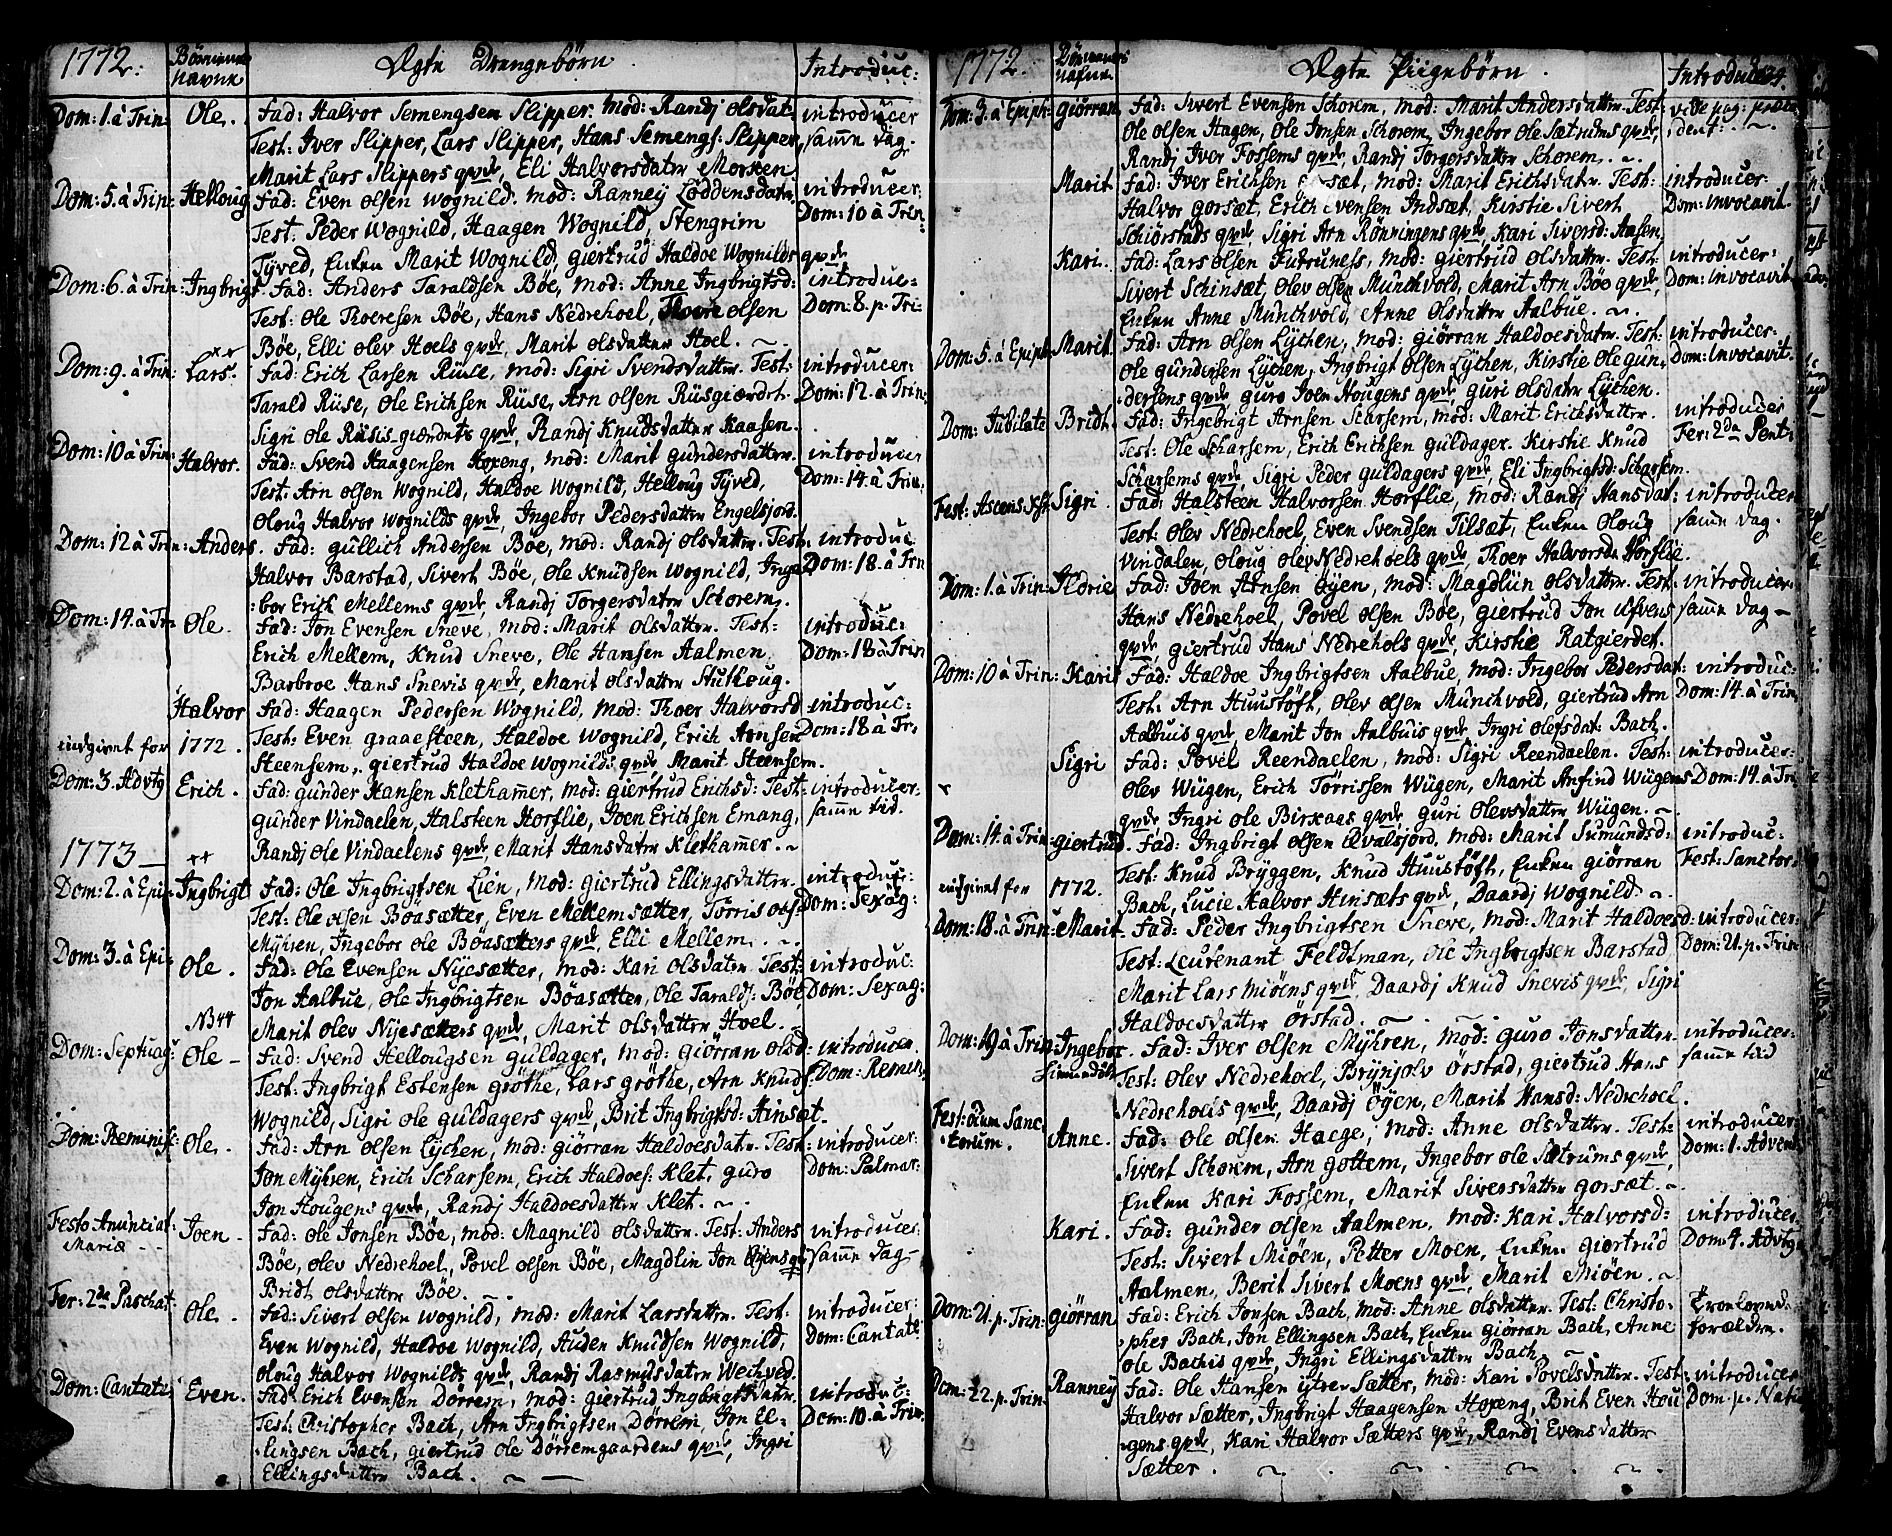 1772. Børnenes navne Ægte Drengebørn. Introduc:
Dom: 1. à Trin: Ole. Fad: Halvor Semengsen Slipper. Mod: Randj Olsdat: introducer
Test: Iver Slipper, Lars Slipper, Hans Semengs: Slipper, samme dag.
Marit Lars Slippers qvde, Eli Halvorsdatter Morken.
Dom: 5. à Trin: Helloug Fad: Even Olsen Wognild. Mod: Ranney Loddensdatr. introducer:
Test: Peder Wognild, Haagen Wognild, Stengrim Dom: 10 à Trin:
Tyved, Enken Marit Wognild, Giertrud Haldoe Wognilds qvde
Dom: 6. à Trin: Ingbrigt Fad: Anders Taraldsen Böe, Mod: Anne Ingbrigtsd: introduc:
Test: Ole Thoeresen Böe, Hans Nedrehoel, Thore Olsen Dom: 8. p. Tri:
Böe, Elli Olev Hoels qvde, Marit Olsdatter Hoel.
Dom: 9. à Trin: Lars. Fad: Erich Larsen Rüse, Mod: Sigri Svendsdatter. Test: introducer:
Tarald Rüse, Ole Erichsen Rüse, Arn Olsen Rüsgiærdet. Dom: 12. à Trin:
Sigri Ole Rüsis giærdets qvde, Randj Knudsdatter Raasen.
Dom: 10 à Trin: Halvor. Fad: Svend Haagensen Hoxeng, Mod: Marit Gundersdatter. introducer
Test: Arn Olsen Wognild, Haldoe Wognild, Helloug Tyved, Dom: 14. à Trin:
Oloug Halvor Wognilds qvde, Ingebor Pedersdatter Engelsjord.
Dom: 12 à Trin: Anders. Fad: Gullich Andersen Böe, Mod: Randj Olsdatter. Test: introduc
Halvor Barstad, Sivert Böe, Ole Knudsen Wognild, Inge= Dom: 18. à Trin
:bor Erich Mellems qvde, Randj Torgersdatter Schorem.
Dom: 14. à Trin Ole. Fad: Jon Evensen Sneve, Mod: Marit Olsdatter. Test: introduc:
Erich Mellem, Knud Sneve, Ole Hansen Aalmen, Dom: 18 à Trin
Barbroe Hans Snevis qvde, Marit Olsdatter Stuthoug.
Halvor Fad: Haagen Pedersen Wognild, Mod: Thoer Halvorsd introduc:
indgivet for 1772. Test: Even Graaesteen, Haldoe Wognild, Erich Arnsen Dom: 18 à Tr:
Steensem, Giertrud Haldoe Wognilds qvde, Marit Steensem.
Dom: 3. Advtg Erich. Fad: Gunder Hansen Klethammer, Mod: Giertrud Erichsd: Test: introducer:
Gunder Vindaelen, Halsteen Horflie, Joen Erichsen Emang, samme tid.
1773 Randj Ole Vindaelens qvde, Marit Hansdatter Klethammer.
Dom: 2. à Epi: Ingbrigt Fad: Ole Ingbrigtsen Lien, Mod: Giertrud Ellingsdatter. introducer:
Test: Ole Olsen Böasætter, Even Mellemsætter, Törris Ols: Dom: Sexag:
Myhren, Ingebor Ole Böasætters qvde, Elli Mellem.
Dom: 3. à Epi: Ole. Fad: Ole Evensen Nyesætter, Mod: Kari Olsdatter. Test: introduc:
Jon Aalbue, Ole Ingbrigtsen Böasætter, Ole Taralds: Böe, Dom: Sexag:
NB Marit Olev Nyesætters qvde, Marit Olsdatter Hoel.
Dom: Septuag: Ole Fad: Svend Hellougsen Guldager, Mod: Giörran Olsd: introducer
Test: Ingbrigt Estensen Gröthe, Lars Gröthe, Arn Knuds: Dom: Remin.
Wognild, Sigri Ole Guldagers qvde, Brit Ingbrigtsd: Hinsæt.
Dom: Reminisc Ole. Fad: Arn Olsen Lychen, Mod: Giörran Haldoesdatr. Test: introducer:
Jon Myhren, Erich Scharsem, Erich Haldoes: Klet, Guro Dom: Palmar:
Jon Hougens qvde, Randj Haldoesdatter Klet.
Festo Anunciat: Mariæ Joen. Fad: Ole Jonsen Böe, Mod: Magnild Olsdatter. Test: Anders introducer:
Böe, Olev Nedrehoel, Povel Olsen Böe, Magdlin Jon Öyens qv: samme dag
Bridt Olsdatter Böe.
Fer: 2da Paschat: Ole. Fad: Sivert Olsen Wognild, Mod: Marit Larsdatter. Test: introducer:
Even Wognild, Haldoe Wognild, Auden Knudsen Wognild, Dom: Cantate
Oloug Halvor Wognilds qvde, Randj Rasmusdatter Weihved.
Dom: Cantate Even. Fad: Erich Evensen Dörrem, Mod: Giertrud Ingbrigtsdatter. introduc:
Test: Christopher Bach, Arn Ingbrigtsen Dörrem, Jon El= Dom: 10. à Trin:
:lingsen Bach, Giertrud Ole Dörremgaardens qvde, Ingri
Ellingsdatter Bach.
1772. Børnenes nafne Ægte Piigebörn. Introduc:
Dom: 3. à Epiph: Giörran Fad: Sivert Evensen Schorem, Mod: Marit Andersdatter. Test: vide pag: præce
Ole Olsen Hagen, Ole Jonsen Schorem, Ingebor Ole Sætrums qvde, :dent:
Randj Iver Fossems qvde, Randj Torgersdatter Schorem.
Marit Fad: Iver Erichsen Gorsæt, Mod: Marit Erichsdatr. Test: introducer:
Halvor Gorsæt, Erich Evensen Indsæt, Kirstie Sivert Dom: invocavit.
Schiörstads qvde, Sigri Arn Rönningens qvde, Kari Siversd: Aasem,
Kari. Fad: Lars Olsen Furruness, Mod: Giertrud Olsdatter. Test: introducer:
Sivert Schinsæt, Olev Olsen Munchvold, Marit Arn Böe qvde, Dom: invocavit
Enken Anne Munchvold, Anne Olsdatter Aalbue.
Dom: 5. à Epiph: Marit. Fad: Arn Olsen Lychen, Mod: Giörran Haldoesdatr. Test: introducer:
Ole Gundersen Lychen, Ingbrigt Olsen Lychen, Kirstie Ole Gun: Dom: invocavit.
:dersens qvde Guro Joen Hougens qvde, Guri Olsdatr Lychen.
Dom: Jubilate Bridt. Fad: Ingebrigt Arnsen Scharsem, Mod: Marit Erichsdatter. introducer
Test: Ole Scharsem, Erich Erichsen Guldager. Kirstie Knud Fer: 2da Pent:
Scharsems qvde, Sigri Peder Guldagers qvde, Eli Ingbrigtsd: Scharsem.
Fest: Ascens: Xsti Sigri. Fad: Halsteen Halvorsen Horflie, Mod: Randj Hansdat: introducer
Test: Olev Nedrehoel, Even Svendsen Tilsæt, Enken Oloug samme dag.
Vindalen, Oloug Olev Nedrehoels qvde, Thoer Halvorsdr Horflie.
Dom: 1. à Trin: Ildrie Fad: Joen Arnsen Öyen, Mod: Magdlin Olsdatter. Test: introducer:
Hans Nedrehoel, Povel Olsen Böe, Giertrud Jon Ulfvens samme dag
qvde, Giertrud Hans Nedrehols qvde, Kirstie Ratgierdet.
Dom: 10 à Trin: Karit Fad: Haldoe Ingbrigtsen Aalbue, Mod: Ingebor Pedersdat: introduc:
Test: Arn Huustöft, Olev Olsen Munchvold, Giertrud Arn Dom: 14. à Trin,
Aalbuis qvde, Marit Jon Aalbuis qvde, Ingri Olefsdat: Bach.
Sigri Fad: Povel Reendaelen, Mod: Sigri Reendaelen. Test: introducer:
Olev Wügen, Erich Törrissen Wügen, Marit Anfind Wügens Dom: 14. à Tri
qvde Ingri Ole Birkaas qvde Guri Olevsdatter Wügen.
Dom: 14. à Trin: Giertrud. Fad: Ingbrigt Olsen Qvalsjord, Mod: Marit Sumundsd: introduc:
indgivet for 1772. Test: Knud Bryggen, Knud Huustöft, Enken Giörran Fest: Sanctor:
Bach, Lucie Halvor Hinsæts qvde, Daardj Wognild.
Dom: 18. à Trin: Marit. Fad: Peder Ingbrigtsen Sneve, Mod: Marit Haldoesd: introducer:
Test: Leutenant Feldtman, Ole Ingbrigtsen Barstad, Dom: 21. p. Trin:
Marit Lars Miöens qvde, Daardj Knud Snevis qvde, Sigri
Haldoesdatter Örstad.
Dom: 19 à Trin: Ingebor. Fad: Iver Olsen Myhren, Mod: Guro Jonsdatter. introducer:
Test: Olev Nedrehoel, Brynjolv Örstad, Giertrud Hans samme tid
Nedrehoels qvde, Daardj Öyen, Marit Hansd: Nedrehoel.
Fest: Oium Sanc: :torum. Anne. Fad: Ole Olsen Haege, Mod: Anne Olsdatter. Test: introducer:
Sivert Schorem, Arn Gottem, Ingebor Ole Sætrums qvde, Dom: 1. Advent
Enken Kari Fossem, Marit Siversdatter Gorsæt.
Kari. Fad: Gunder Olsen Aalmen, Mod: Kari Halvorsd: introducer
Test: Sivert Miöen, Petter Moen, Enken Giertrud Dom 4. Advtg
Aalmen, Berit Sivert Moens qvde, Marit Miöen.
Dom: 21. p. Trin: Giörran Fad: Erich Jonsen Bach, Mod: Anne Olsdatter. Test: Christo= Trolovede
:pher Bach, Jon Ellingsen Bach, Enken Giörran Bach, Anne forældre.
Ole Bachis qvde, Ingri Ellingsdatter Bach.
Dom: 22. p. Trin: Ranney Fad: Ole Hansen ytre Sætter, Mod: Kari Povelsdatter. Test: introducer
Halvor Sætter, Ingbrigt Haagensen Hoxeng, Brit Even Hou Dom: p. Nati
:gens qvde, Kari Halvor Sætters qvde, Randj Evensdatter
Sætter.